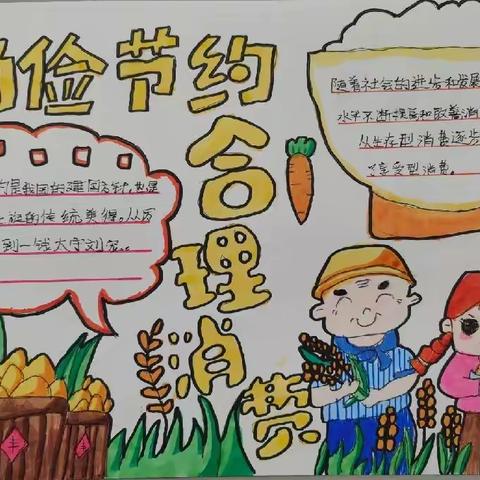 俭节约
合
理
消
费
是我国的建国方针,也是
族的传统美德。从
到一钱太守刘宠。
随着社会的进步和发展
水平不断提高和改善消
从生存型消费逐步
享受型消费。
丰
丰